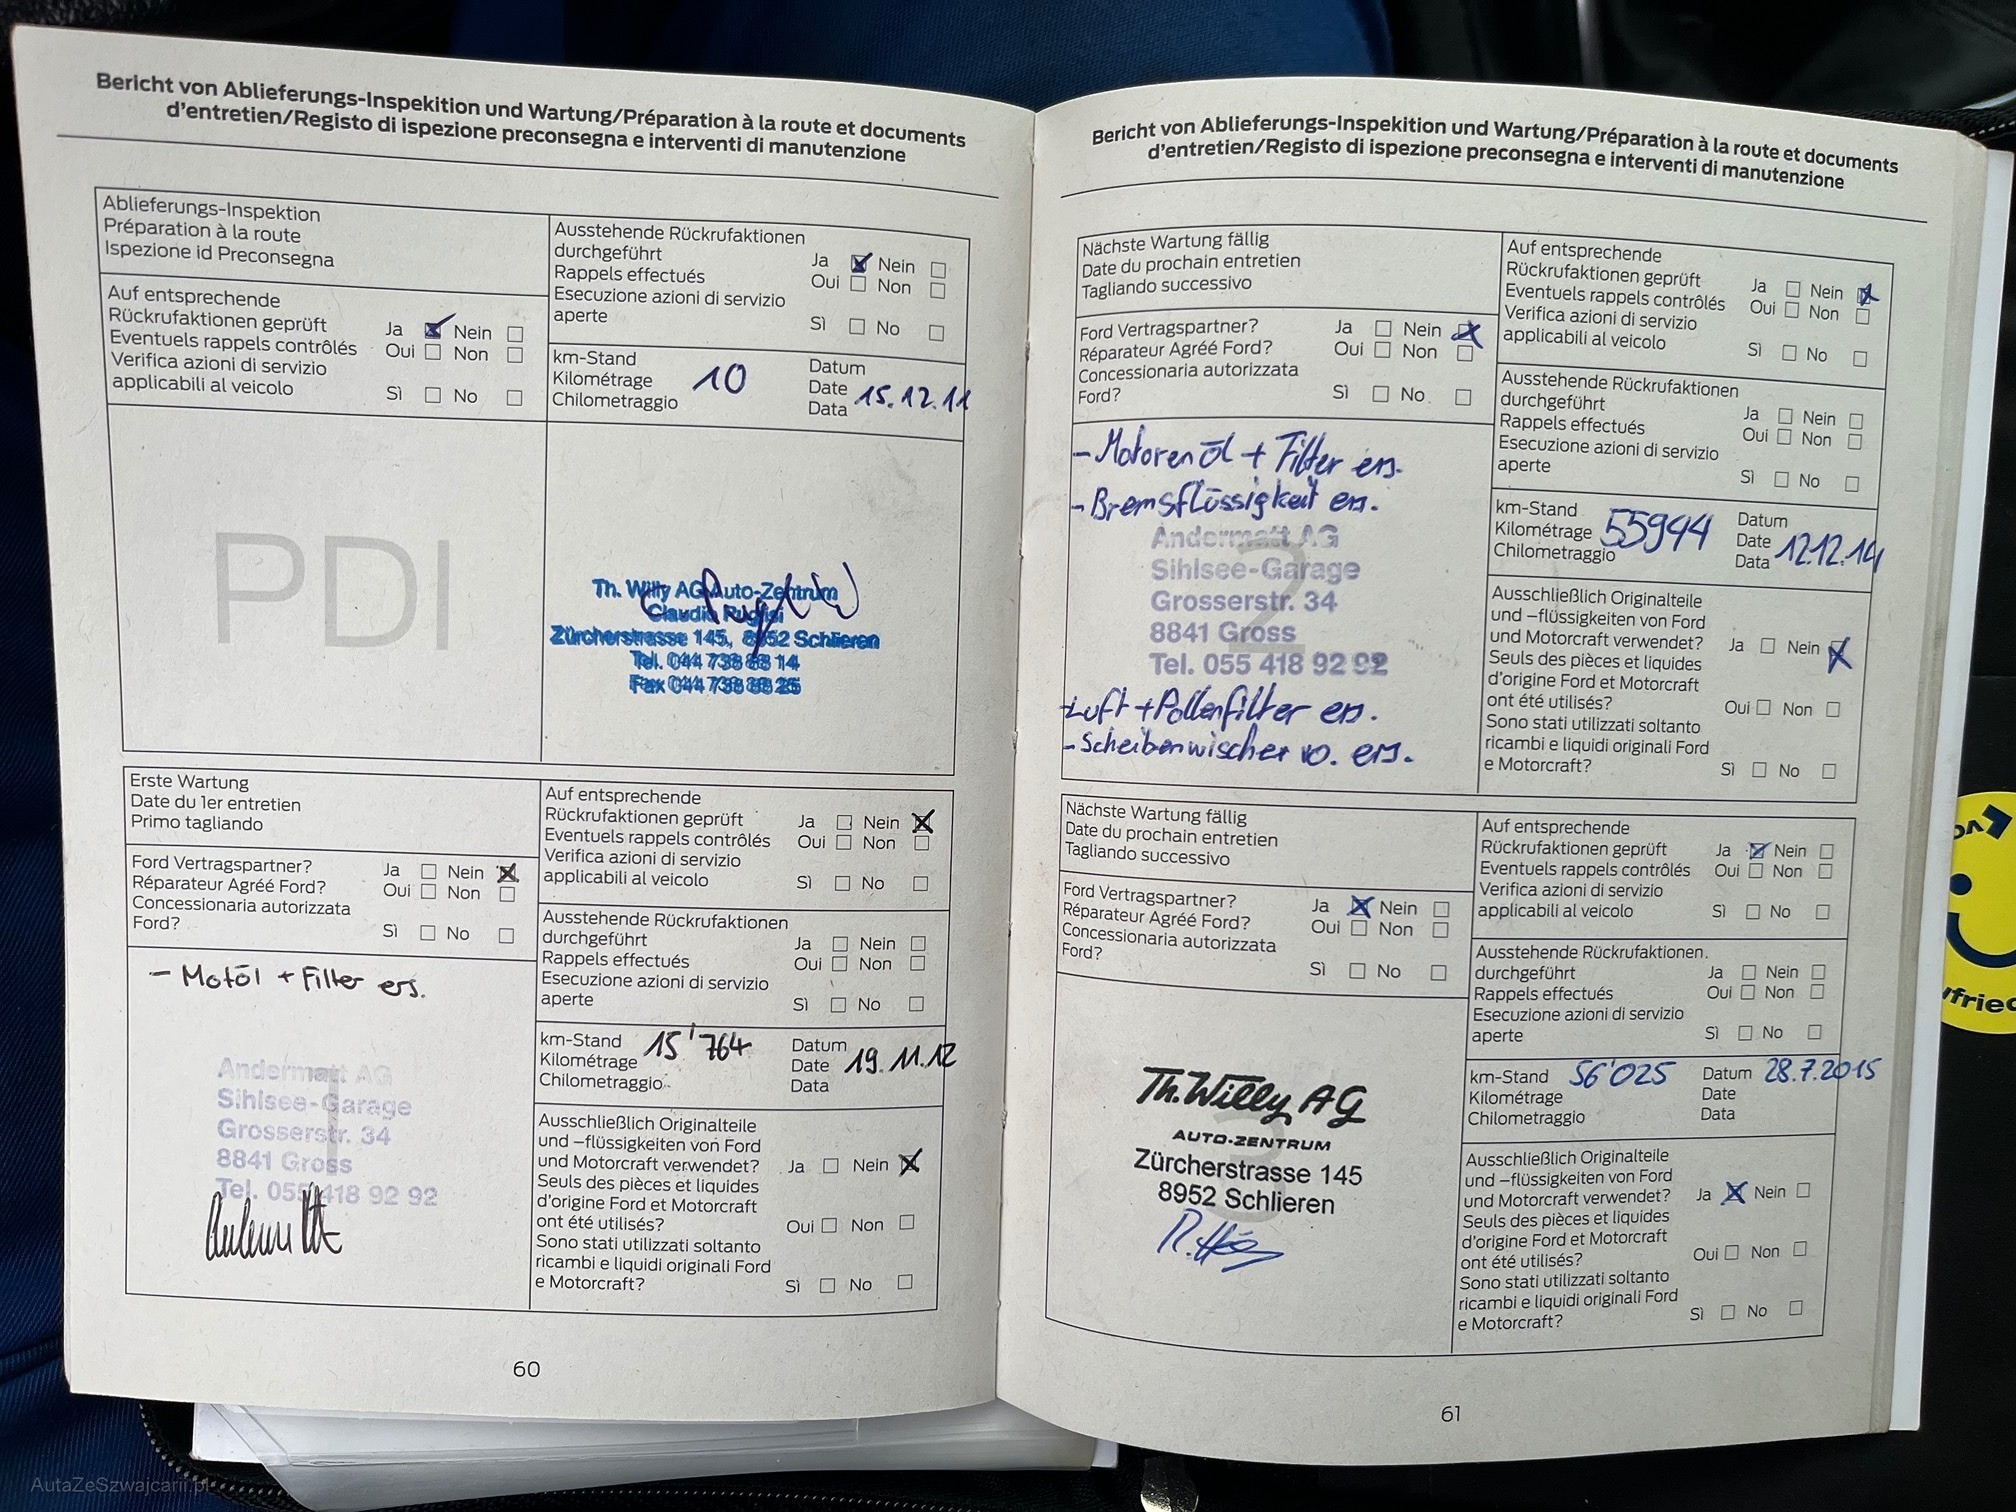 Bericht von Ablieferungs-Inspekition und Wartung/Préparation à la route et documents
d'entretien/Registo di ispezione preconsegna e interventi di manutenzione
Ablieferungs-Inspektion
Préparation à la route
Ispezione id Preconsegna
Auf entsprechende
Rückrufaktionen geprüft Ja Nein
Eventuels rappels contrôlés Oui Non
Verifica azioni di servizio
applicabili al veicolo Sì No
Ausstehende Rückrufaktionen
durchgeführt Ja Nein
Rappels effectués Oui Non
Esecuzione azioni di servizio
aperte Sì No
km-Stand
Kilométrage 10
Chilometraggio
Datum
Date 15.12.11
Data
PDI
Th. Willy AG Auto-Zentrum
Claudio Puglisi
Zürcherstrasse 145, 8952 Schlieren
Tel. 044 738 88 14
Fax 044 738 88 25
Erste Wartung
Date du 1er entretien
Primo tagliando
Ford Vertragspartner? Ja Nein
Réparateur Agréé Ford? Oui Non
Concessionaria autorizzata
Ford? Sì No
- Motöl + Filter ers.
Andermatt AG
Sihlsee-Garage
Grosserstr. 34
8841 Gross
Tel. 055 418 92 92
1
Auf entsprechende
Rückrufaktionen geprüft Ja Nein
Eventuels rappels contrôlés Oui Non
Verifica azioni di servizio
applicabili al veicolo Sì No
Ausstehende Rückrufaktionen
durchgeführt Ja Nein
Rappels effectués Oui Non
Esecuzione azioni di servizio
aperte Sì No
km-Stand 15'764
Kilométrage
Chilometraggio
Datum
Date 19.11.12
Data
Ausschließlich Originalteile
und –flüssigkeiten von Ford
und Motorcraft verwendet? Ja Nein
Seuls des pièces et liquides
d'origine Ford et Motorcraft
ont été utilisés? Oui Non
Sono stati utilizzati soltanto
ricambi e liquidi originali Ford
e Motorcraft? Sì No
60
Bericht von Ablieferungs-Inspekition und Wartung/Préparation à la route et documents
d'entretien/Registo di ispezione preconsegna e interventi di manutenzione
Nächste Wartung fällig
Date du prochain entretien
Tagliando successivo
Ford Vertragspartner? Ja Nein
Réparateur Agréé Ford? Oui Non
Concessionaria autorizzata
Ford? Sì No
- Motorenöl + Filter ers.
- Bremsflüssigkeit ers.
Andermatt AG
Sihlsee-Garage
Grosserstr. 34
8841 Gross
Tel. 055 418 92 92
2
- Luft + Pollenfilter ers.
- Scheibenwischer v. ers.
Auf entsprechende
Rückrufaktionen geprüft Ja Nein
Eventuels rappels contrôlés Oui Non
Verifica azioni di servizio
applicabili al veicolo Sì No
Ausstehende Rückrufaktionen
durchgeführt Ja Nein
Rappels effectués Oui Non
Esecuzione azioni di servizio
aperte Sì No
km-Stand
Kilométrage 55944
Chilometraggio
Datum
Date 12.12.14
Data
Ausschließlich Originalteile
und –flüssigkeiten von Ford
und Motorcraft verwendet? Ja Nein
Seuls des pièces et liquides
d'origine Ford et Motorcraft
ont été utilisés? Oui Non
Sono stati utilizzati soltanto
ricambi e liquidi originali Ford
e Motorcraft? Sì No
Nächste Wartung fällig
Date du prochain entretien
Tagliando successivo
Ford Vertragspartner? Ja Nein
Réparateur Agréé Ford? Oui Non
Concessionaria autorizzata
Ford? Sì No
Th. Willy AG
AUTO-ZENTRUM
Zürcherstrasse 145
8952 Schlieren
3
Auf entsprechende
Rückrufaktionen geprüft Ja Nein
Eventuels rappels contrôlés Oui Non
Verifica azioni di servizio
applicabili al veicolo Sì No
Ausstehende Rückrufaktionen.
durchgeführt Ja Nein
Rappels effectués Oui Non
Esecuzione azioni di servizio
aperte Sì No
km-Stand 56'025
Kilométrage
Chilometraggio
Datum 28.7.2015
Date
Data
Ausschließlich Originalteile
und –flüssigkeiten von Ford
und Motorcraft verwendet? Ja Nein
Seuls des pièces et liquides
d'origine Ford et Motorcraft
ont été utilisés? Oui Non
Sono stati utilizzati soltanto
ricambi e liquidi originali Ford
e Motorcraft? Sì No
61
AutaZeSzwajcarii.pl